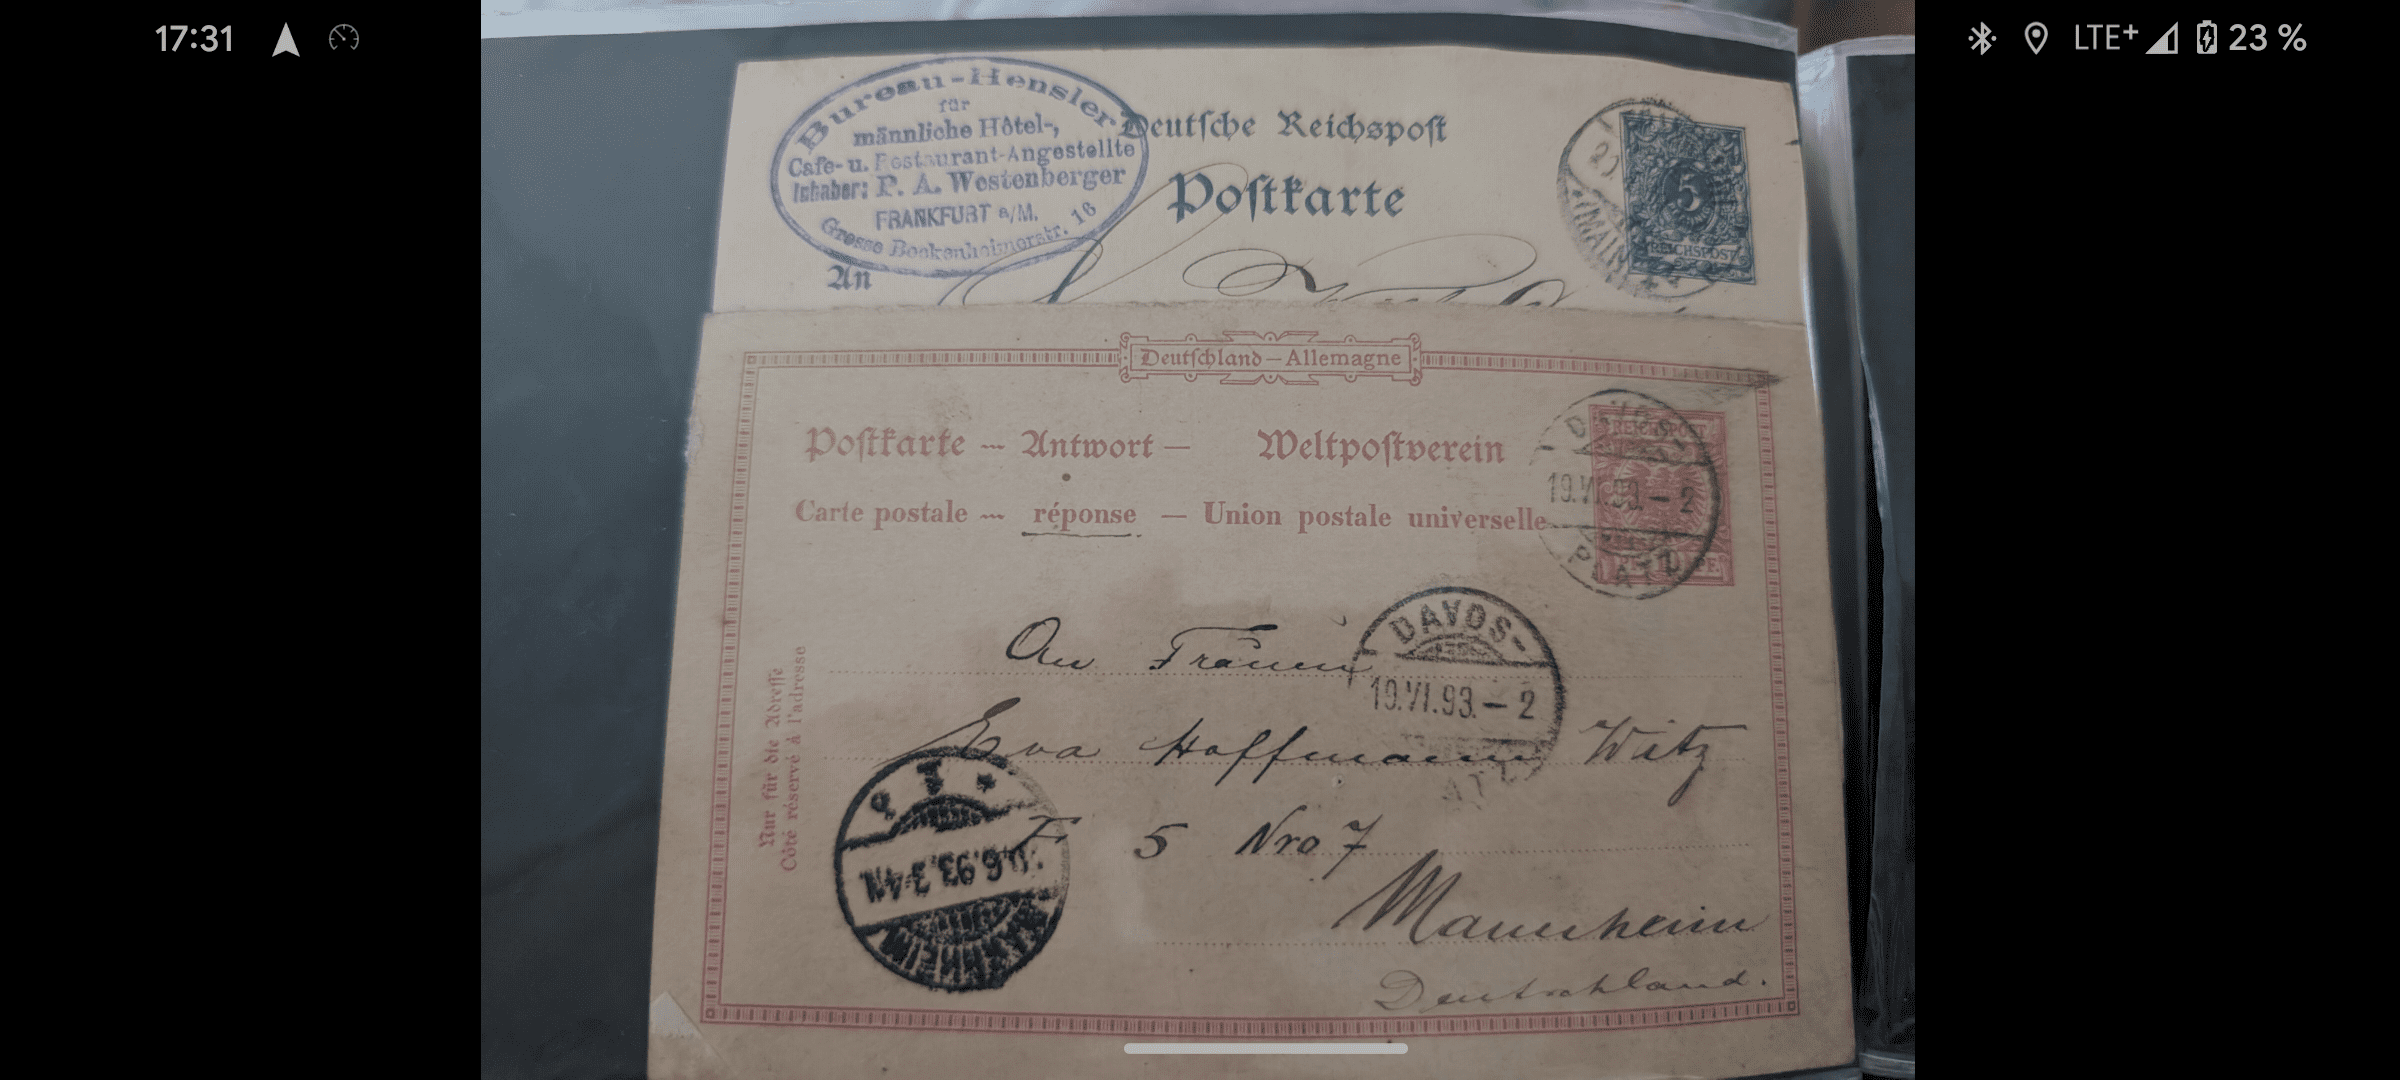 17:31
LTE+ 23 %
Bureau-Hensler
für
männliche Hôtel-,
Cafe- u. Restaurant-Angestellte
Inhaber: P. A. Westenberger
FRANKFURT a/M.
Grosse Bockenheimerstr. 16
Deutsche Reichspost
Postkarte
An
5
REICHSPOST
(MAIN)
Deutschland – Allemagne
Postkarte — Antwort — Weltpostverein
Carte postale — réponse — Union postale universelle
REICHSPOST
DAVOS-
19.VI.93.– 2
PLATZ
10 PF.
An Fräulein
DAVOS-
19.VI.93.– 2
Eva Hoffmann Witz
F 5 Nro 7
Mannheim
Deutschland.
MANNHEIM
.6.93.3-4N
Nur für die Adresse
Côté réservé à l'adresse